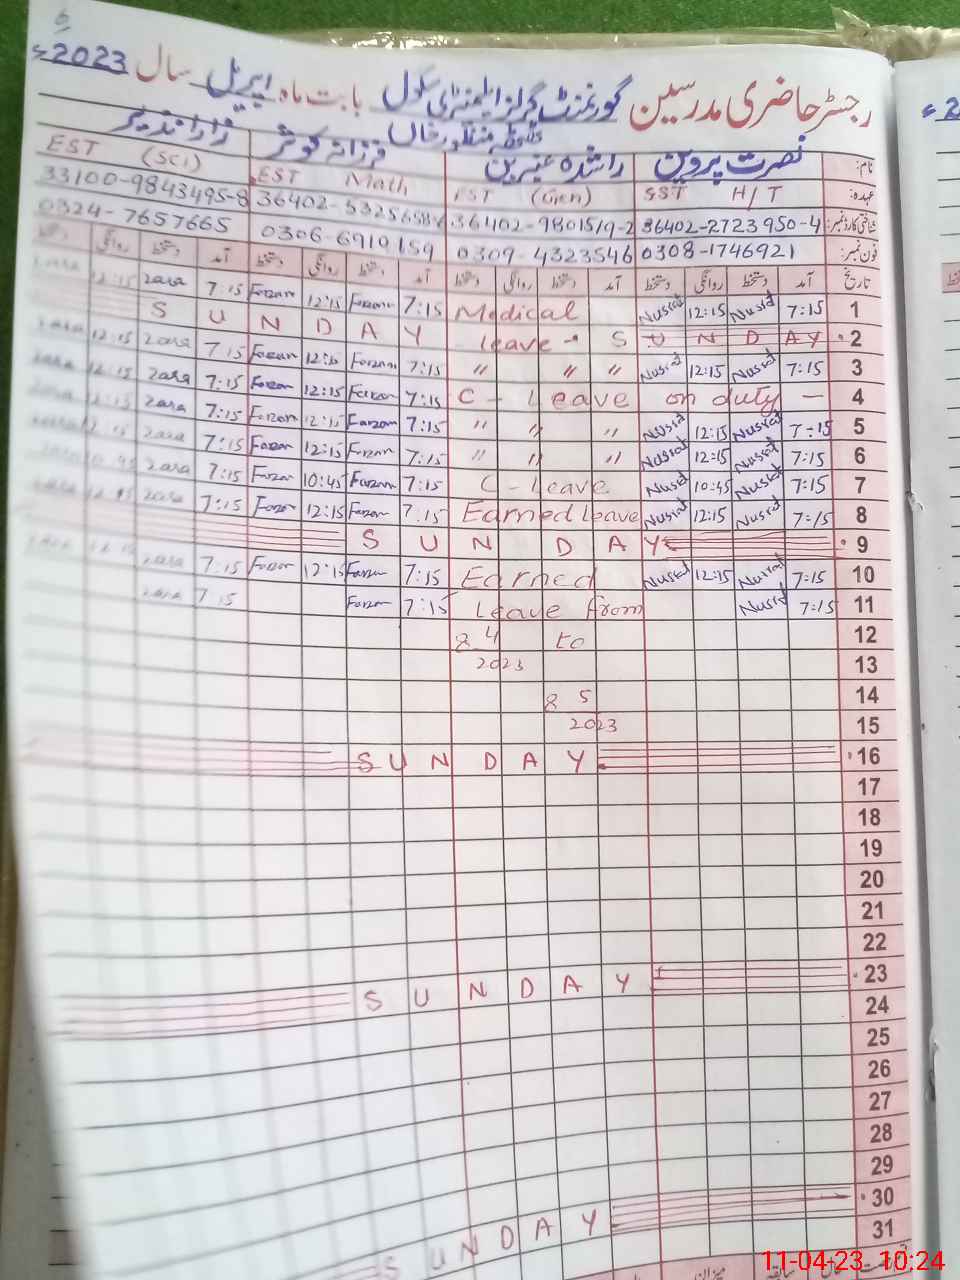 6
رجسٹر حاضری مدرسین گورنمنٹ گرلز ایلیمنٹری سکول بابت ماہ اپریل سال 2023ء
منظور خاں
نام: نصرت پروین راشدہ عنبرین فرزانہ کوثر زارا نذیر
عہدہ: SST H/T EST (Gen) EST Math EST (Sci)
شناختی کارڈ نمبر: 36402-2723950-4 36402-9801519-2 33100-9843495-8
فون نمبر: 0308-1746921 0309-4323546 0306-6919159 0324-7657665
تاریخ آمد دستخط روانگی دستخط آمد دستخط روانگی دستخط آمد دستخط روانگی دستخط آمد دستخط روانگی دستخط
1 7:15 Nusrat 12:15 Nusrat Medical 7:15 Farzan 12:15 Farzan 7:15 zara 12:15 zara
2 SUNDAY leave - SUNDAY
3 7:15 Nusrat 12:15 Nusrat " " " 7:15 Farzan 12:15 Farzan 7:15 zara 12:15
4 on duty — C - Leave 7:15 Farzan 12:15 Farzan 7:15 zara 12:15
5 7:15 Nusrat 12:15 Nusrat " " " 7:15 Farzan 12:15 Farzan 7:15 zara 12:15
6 7:15 Nusrat 12:15 Nusrat " " " 7:15 Farzan 12:15 Farzan 7:15 zara 12:15
7 7:15 Nusrat 10:45 Nusrat C - Leave 7:15 Farzan 10:45 Farzan 7:15 zara 10:45
8 7:15 Nusrat 12:15 Nusrat Earned Leave 7:15 Farzan 12:15 Farzan 7:15 zara 12:15
9 SUNDAY
10 7:15 Nusrat 12:15 Nusrat Earned 7:15 Farzan 12:15 Farzan 7:15 zara 12:15
11 7:15 Nusrat Leave from 7:15 Farzan 7:15 zara
12 8 4 to
13 2023
14 8 5
15 2023
16 SUNDAY
17
18
19
20
21
22
23 SUNDAY
24
25
26
27
28
29
30 SUNDAY
31
میزان سابقہ
11-04-23 10:24